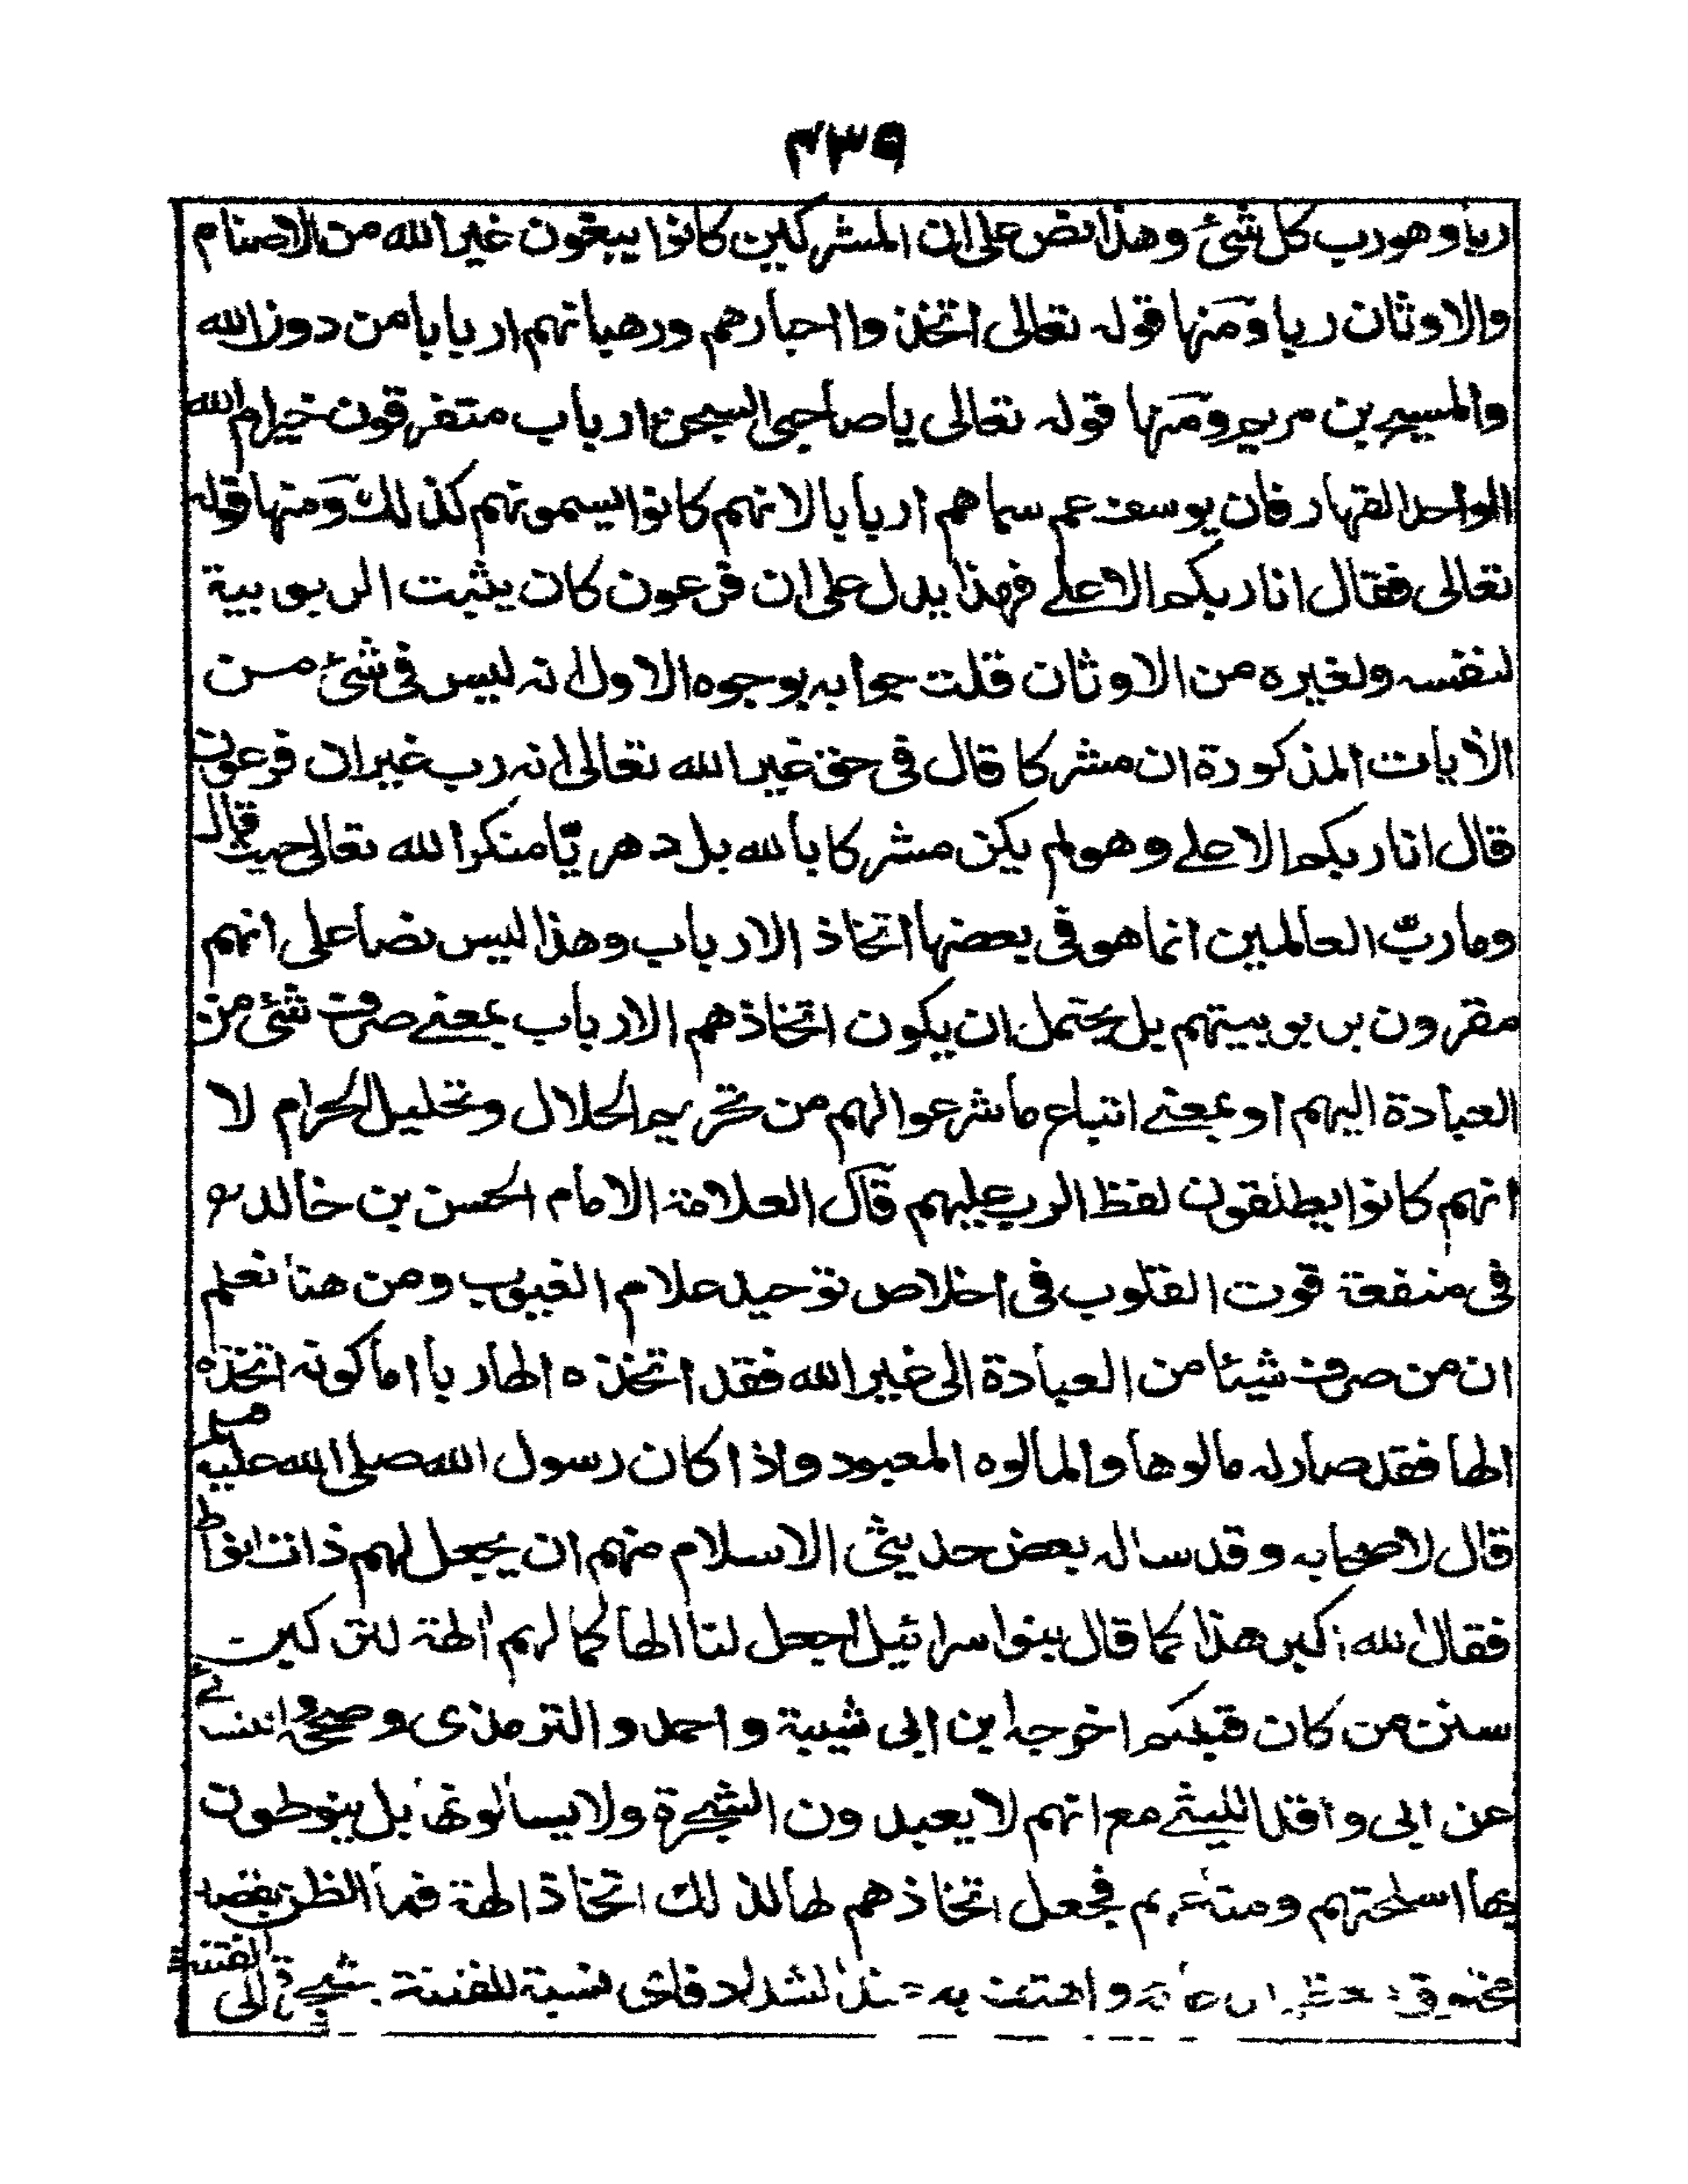 ٤٣٩
ربا وهو رب كل شئ وهذا نص على ان المشركين كانوا يبغون غير الله من الاصنام
والاوثان ربا ومنها قوله تعالى اتخذوا احبارهم ورهبانهم اربابا من دون الله
والمسيح بن مريم ومنها قوله تعالى ياصاحبى السجن ءارباب متفرقون خير ام الله
الواحد القهار فان يوسف عم سماهم اربابا لانهم كانوا يسمونهم كذلك ومنها قوله
تعالى فقال انا ربكم الاعلى فهذا يدل على ان فرعون كان يثبت الربوبية
لنفسه ولغيره من الاوثان قلت جوابه بوجوه الاول انه ليس فى شئ من
الأيات المذكورة ان مشركا قال فى حق غير الله تعالى انه رب غير ان فرعون
قال انا ربكم الاعلے وهو لم يكن مشركا بالله بل دهريّا منكرا لله تعالى حيث قال
وما ربّ العالمين انما هو فى بعضها اتخاذ الارباب وهذا ليس نصا على انهم
مقرون بربوبيتهم بل يحتمل ان يكون اتخاذهم الارباب بمعنے صرف شئ من
العبادة اليهم او بمعنے اتباع ما شرعوا لهم من تحريم الحلال وتحليل الحرام لا
انهم كانوا يطلقون لفظ الرب عليهم قال العلامة الامام الحسن بن خالد رح
فى منفعة قوت القلوب فى اخلاص توحيد علام الغيوب ومن هنا نعلم
ان من صرف شيئا من العبادة الى غير الله فقد اتخذه الها ربا اما كونه اتخذه
الها فقد صار له مالوها والمالوه المعبود واذا كان رسول الله صلى الله عليه وسلم
قال لاصحابه وقد ساله بعض حديثى الاسلام منهم ان يجعل لهم ذات انواط
فقال الله اكبر هذا كما قال بنوا سرائيل اجعل لنا الها كما لهم الهة لتركبن
سنن من كان قبلكم اخرجه ابن ابى شيبة واحمد والترمذى وصححه والنسائے
عن ابى واقد الليثے مع انهم لا يعبدون الشجرة ولا يسالونها بل ينوطون
بها اسلحتهم ومتاعهم فجعل اتخاذهم لها لذلك اتخاذ الهة فما الظن بقصد
مخلوق واهتف به عند الشدائد فاى نسبة للفتنة بشجرة الى الفتنة